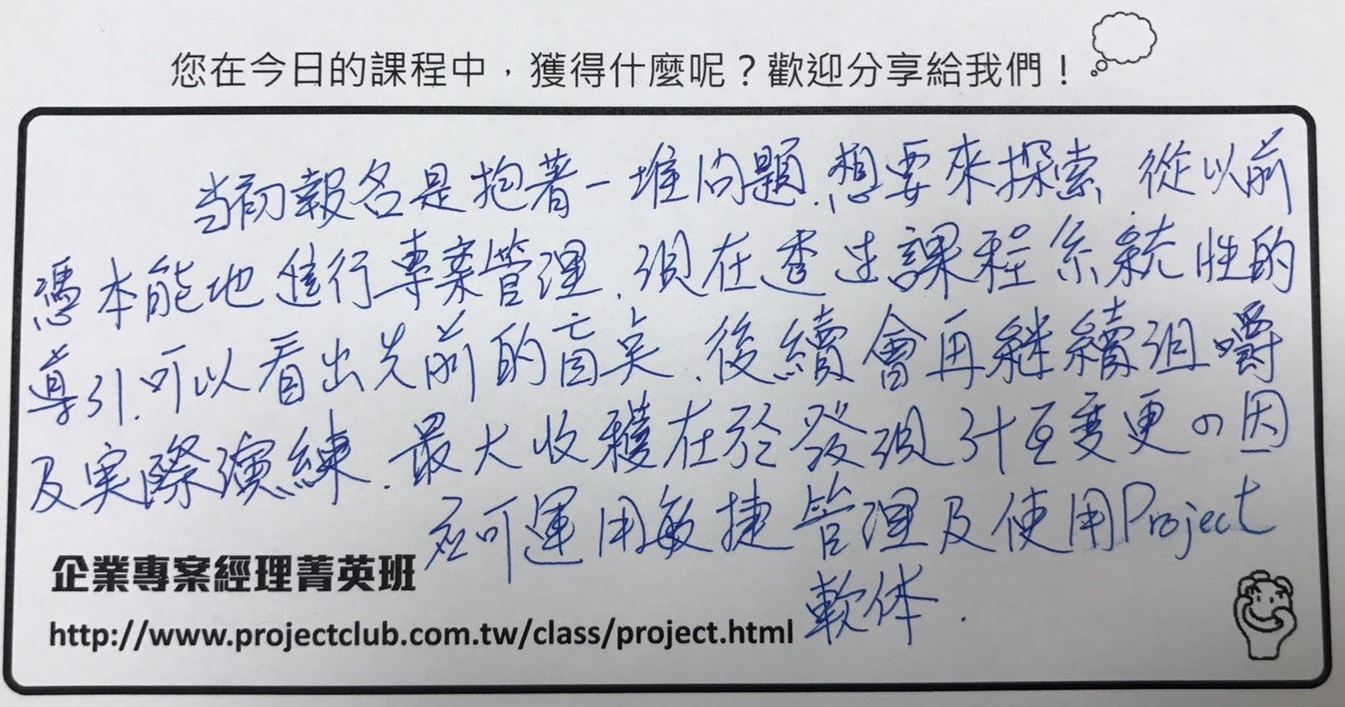 您在今日的課程中，獲得什麼呢？歡迎分享給我們！
当初報名是抱著一堆問題.想要來探索.從以前
憑本能地進行專案管理.現在透过課程系統性的
導引.可以看出先前的盲点.後續會再継續咀嚼
及実際演練.最大收穫在於發現計画變更の因
应可運用敏捷管理及使用Project
軟体.
企業專案經理菁英班
http://www.projectclub.com.tw/class/project.html